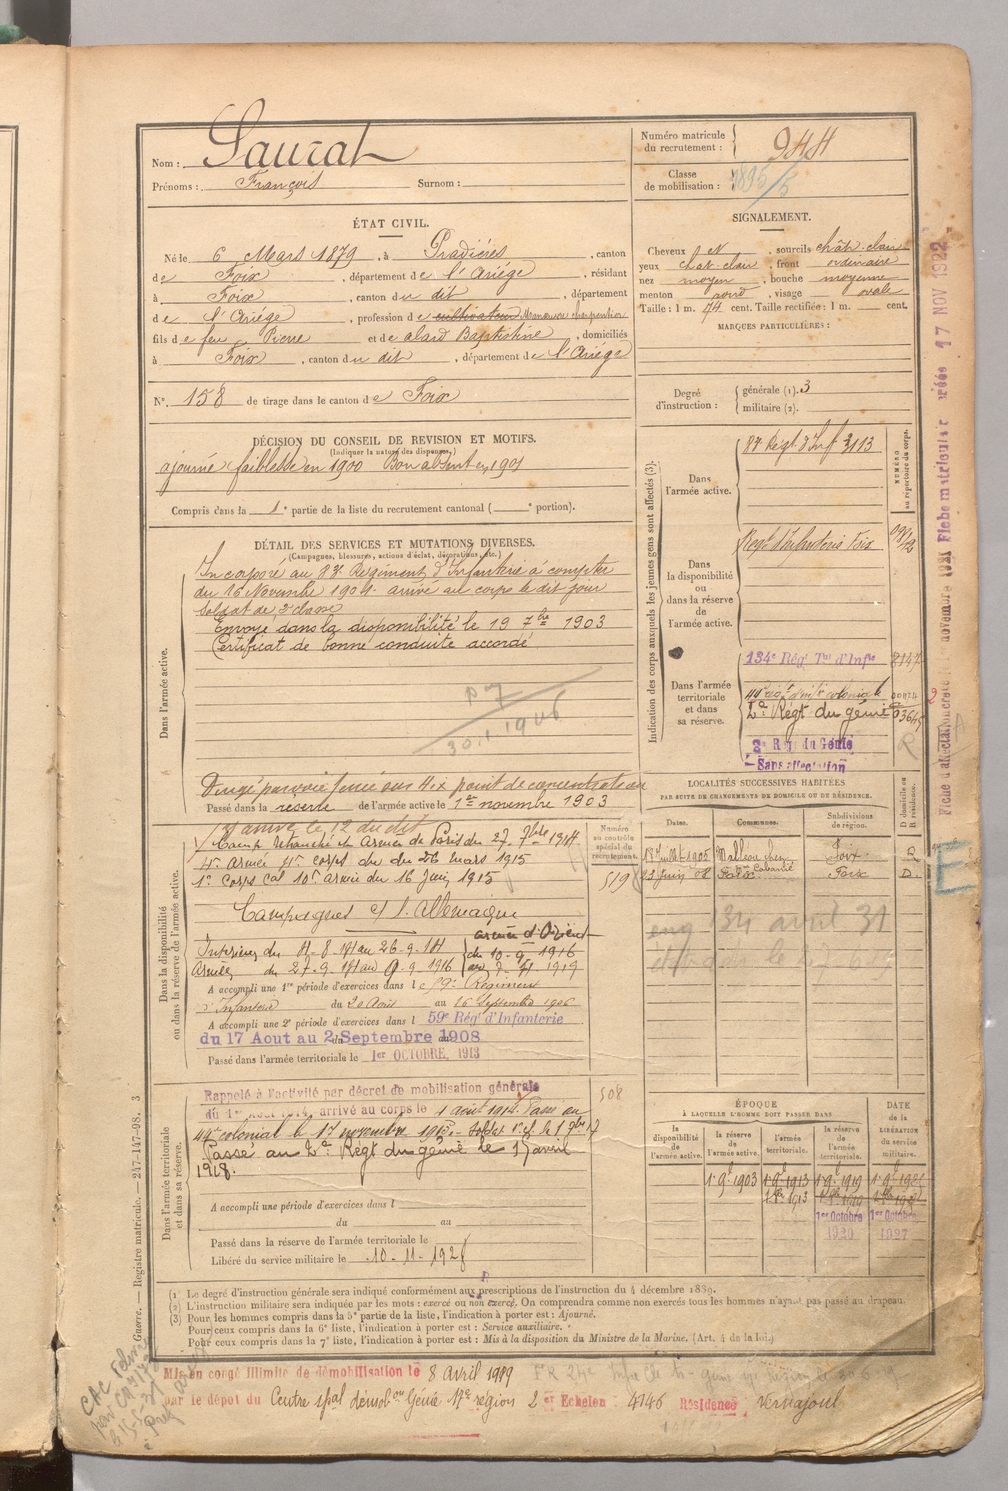 Nom : Saurat
Prénoms : François Surnom :
Numéro matricule du recrutement : 944
Classe de mobilisation : 1895/5
ÉTAT CIVIL.
Né le 6 Mars 1879, à Pradières, canton
de Foix, département de l'Ariège, résidant
à Foix, canton du dit, département
de l'Ariège, profession de cultivateur Manœuvre charpentier
fils de feu Pierre et de alard Baptistine, domiciliés
à Foix, canton du dit, département de l'Ariège
N° 158 de tirage dans le canton de Foix
SIGNALEMENT.
Cheveux et, sourcils chât. clair
yeux chat. clair, front ordinaire
nez moyen, bouche moyenne
menton rond, visage ovale
Taille : 1 m. 74 cent. Taille rectifiée : 1 m. cent.
MARQUES PARTICULIÈRES :
Degré d'instruction : générale (1). 3
militaire (2).
DÉCISION DU CONSEIL DE REVISION ET MOTIFS.
(Indiquer la nature des dispenses.)
ajourné faiblesse en 1900 Bon absent en 1901
Compris dans la 1e partie de la liste du recrutement cantonal ( e portion).
DÉTAIL DES SERVICES ET MUTATIONS DIVERSES.
(Campagnes, blessures, actions d'éclat, décorations, etc.)
Dans l'armée active.
Incorporé au Régiment d'Infanterie à compter
du 16 Novembre arrivé au corps le dit jour
Soldat de 2e classe
Envoyé dans la disponibilité le 19 7bre 1903
Certificat de bonne conduite accordé
30.1.1906
Dirigé par voie ferrée sur point de concentration
Passé dans la réserve de l'armée active le 1er novembre 1903
Indication des corps auxquels les jeunes gens sont affectés (3).
NUMÉRO au répertoire du corps.
Dans l'armée active.
Régt d'Inf 3113
Dans la disponibilité ou dans la réserve de l'armée active.
Régt d'Infanterie Foix
Dans l'armée territoriale et dans sa réserve.
134e Rég Tal d'Infie 2147
44e colonial
2e Régt du génie
2e Rég du Génie
Sans affectation
LOCALITÉS SUCCESSIVES HABITÉES
PAR SUITE DE CHANGEMENTS DE DOMICILE OU DE RÉSIDENCE.
Dates. Communes. Subdivisions de région. D domicile ou R résidence.
18 Juillet 1905 Malleau chez Foix R
23 Juin 08 Foix Foix D.
Numéro au contrôle spécial du recrutement.
519
508
Dans la disponibilité ou dans la réserve de l'armée active.
arrivé le 12 du dit
Camp retranché Armée de Paris du 27. 7bre 1914
4e armée 4e corps du 26 mars 1915
1er Corps Cal 10e armée du 16 Juin 1915
Campagnes c/ l'Allemagne
armée d'Orient
Intérieur du 11-8-14 au 26-9-14 du 10-9-1916
Armées du 27-9-14 au 9-9-1916
A accompli une 1re période d'exercices dans le 59e Régiment
d'Infanterie du 20 Août au 16 Septembre 1906
A accompli une 2e période d'exercices dans l 59e Rég d'Infanterie
du 17 Aout au 2 Septembre 1908
Passé dans l'armée territoriale le 1er OCTOBRE, 1913
Dans l'armée territoriale et dans sa réserve.
Rappelé à l'activité par décret de mobilisation générale
du 1er Août 1914, arrivé au corps le août 1914. Passé au
44e colonial le 17 novembre 1915.
Passé au 2e Régt du génie le 15 avril
1918.
A accompli une période d'exercices dans l
du au
Passé dans la réserve de l'armée territoriale le
Libéré du service militaire le 10-11-1928
ÉPOQUE
À LAQUELLE L'HOMME DOIT PASSER DANS
la disponibilité de l'armée active. la réserve de l'armée active. l'armée territoriale. la réserve de l'armée territoriale.
DATE de la LIBÉRATION du service militaire.
1 9e 1903 1 9e 1913 1 9e 1919
1er Octobre 1er Octobre
1920 1927
(1) Le degré d'instruction générale sera indiqué conformément aux prescriptions de l'instruction du 4 décembre 1889.
(2) L'instruction militaire sera indiquée par les mots : exercé ou non exercé. On comprendra comme non exercés tous les hommes n'ayant pas passé au drapeau.
(3) Pour les hommes compris dans la 5e partie de la liste, l'indication à porter est : Ajourné.
Pour ceux compris dans la 6e liste, l'indication à porter est : Service auxiliaire.
Pour ceux compris dans la 7e liste, l'indication à porter est : Mis à la disposition du Ministre de la Marine. (Art. 4 de la loi.)
Guerre. — Registre matricule. — 247-147-98. 3
Mis en congé illimité de démobilisation le 8 avril 1919
par le dépôt du Centre spal démob ou Génie 17e région 2 er Echelon 4146 Résidence Vernajoul